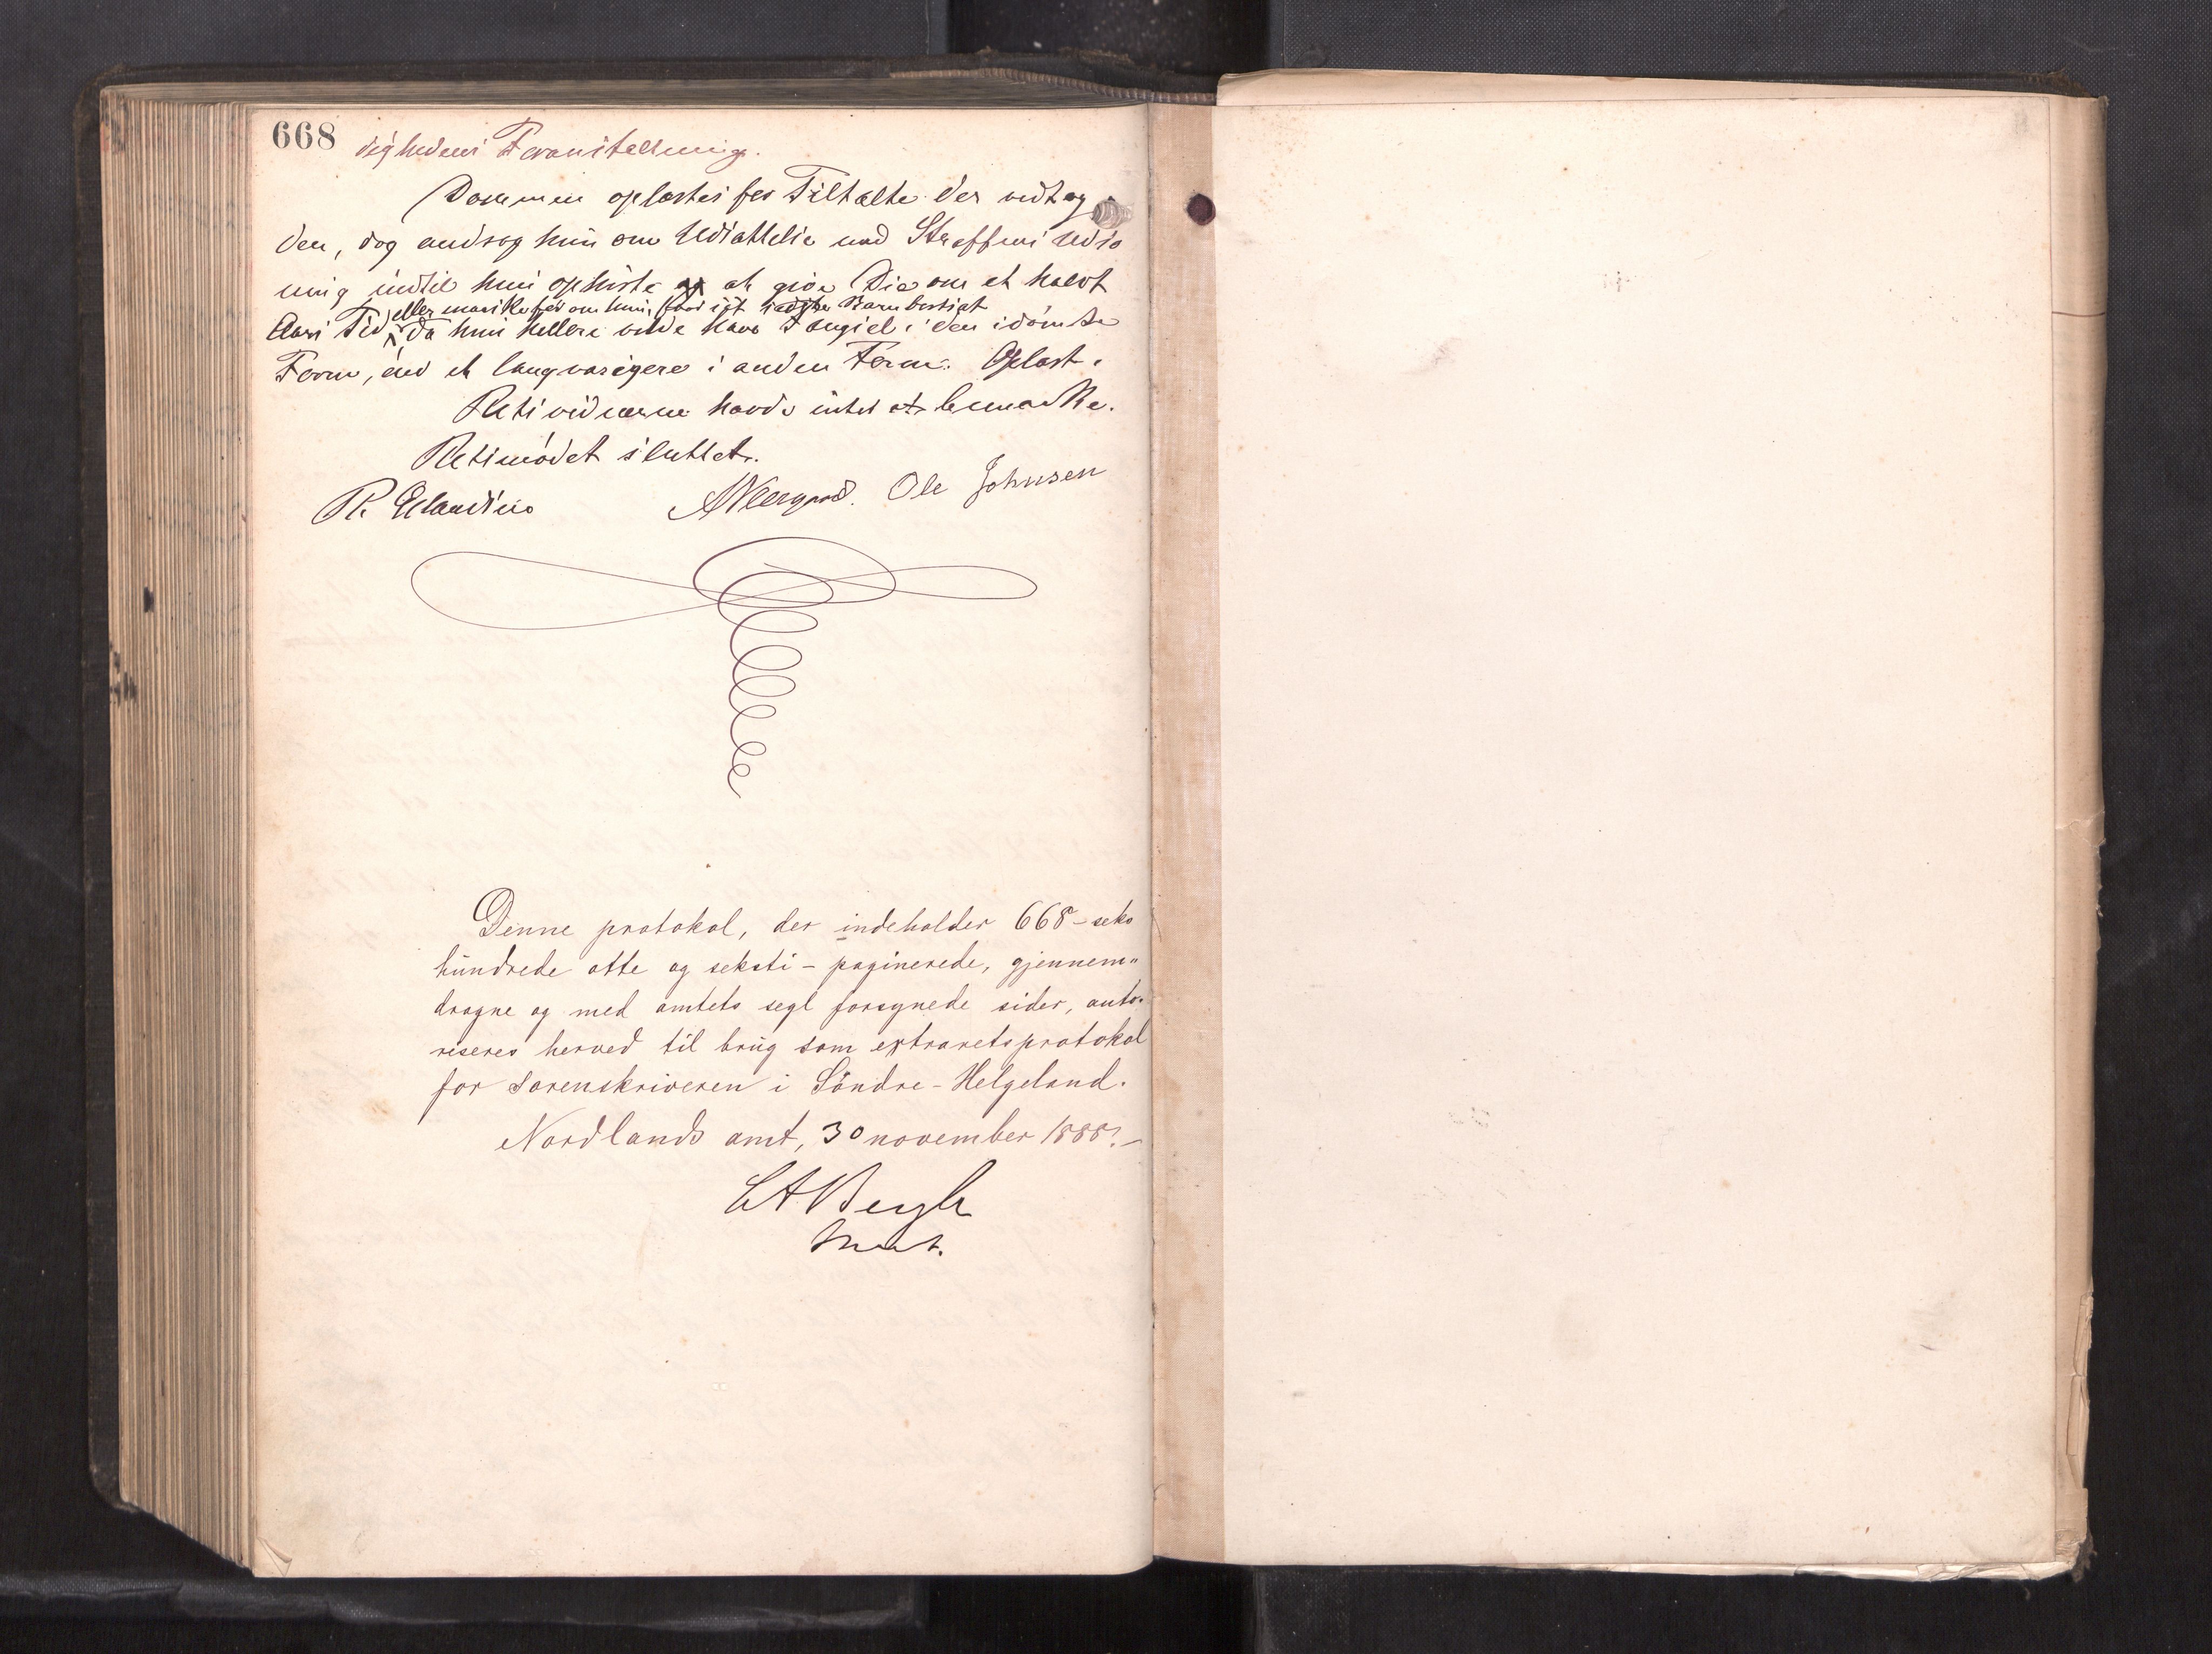 668
dighedens Foranstaltning.
Dommen oplæstes for Tiltalte der vedtog
den, dog andsøg hun om Udsættelse med Straffens Udso
ning indtil hun ophørte at give Die om et halvt
eller maaske før om hun faar sit Barn bortsat
Aars Tid, da hun hellere vilde have Fængsel i den idømte
Form, end et langvarigere i anden Form. Oplæst.
Retsvidnerne havde intet at bemærke.
Retsmødet sluttet.
Ole Johnsen
Denne protokol, der indeholder 668 - seks
hundrede otte og seksti - paginerede, gjennem"
dragne og med amtets segl forsynede sider, auto-
riseres herved til brug som extraretsprotokol
for sorenskriveren i Söndre-Helgeland.
Nordlands amt, 30 november 1888. -